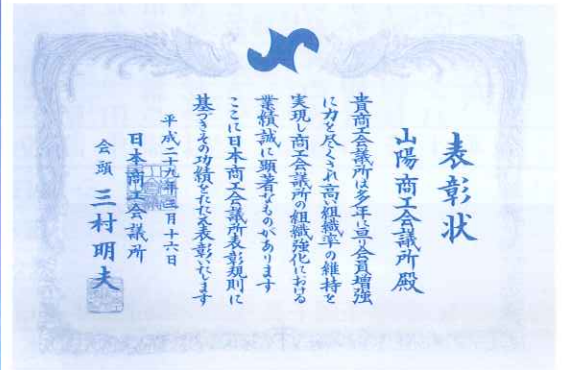 表彰状
山陽商工会議所殿
貴商工会議所は多年に亘り会員増強
に力を尽くされ高い組織率の維持を
実現し商工会議所の組織強化における
業績誠に顕著なものがあります
ここに日本商工会議所表彰規則に
基づきその功績をたたえ表彰いたします
平成二十九年三月十六日
日本商工会議所
会頭 三村明夫